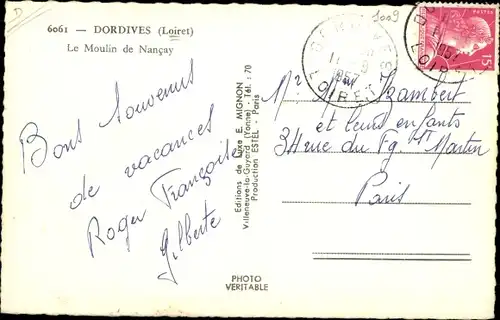 6061 — DORDIVES (Loiret)
Le Moulin de Nançay
Bons souvenirs
de vacances
Roger Françoise
Gilberte
Editions de Luxe E. MIGNON
Villeneuve-la-Guyard (Yonne) - Tél. : 70
Production ESTEL - Paris
PHOTO
VERITABLE
1957
LOIRET
POSTES
15F
1957
Mr Mme Lambert
et leurs enfants
34 rue du Fg St Martin
Paris